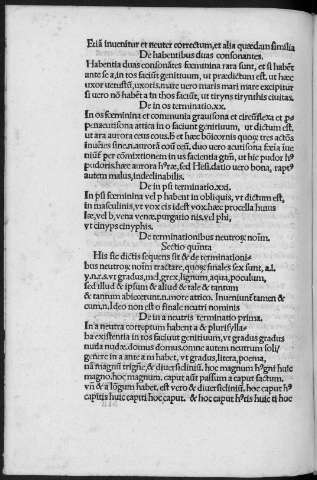 Etiã inuenitur et neuter correctum, et alia quædam similia
De habentibus duas consonantes.
Habentia duas consonãtes fœminina rara sunt, et si habẽt
ante se a, in tos faciũt genitiuum, ut prædictum est. ut hæc
uxor uenustã, uxoris. mare uero maris mari mare excipitur
si uero nõ habẽt a in thos faciũt, ut tiryns tirynthis ciuitas.
De in os terminatio.xx.
In os fœminina et communia grauisona et circũflexa et
penacutisona attica in o faciunt genitiuum, ut dictum est.
ut ara aurora eous eous.
niũt per cõmixtionem in us facientia gtm̃, ut hic pudor hꝰ
pudoris. hæc aurora hꝰræ, sed Hesi. datio uero bona, raptꝰ
autem malus, indeclinabilis.
De in psi terminatio.xxi.
In psi fœminina uel p habent in obliquis, ut dictum est,
in masculinis, ut uox cis idest vox. hæc procella huius
læ, vel b, vena venæ. purgatio nis. vel phi,
vt cinyps cinyphis.
De terminationibus neutroꝝ noĩm.
Sectio quinta
His sic dictis sequens sit &amp; de terminationi-
bus neutroꝝ noĩm tractare, quoꝝ finales sex sunt, a.i.
y.n.r.s. vt gradus, mel, grex, lignum, aqua, poculum,
sed illud &amp; ipsum &amp; aliud &amp; tale &amp; tantum
&amp; tantum abiecerunt.n. more attico. Inueniunt tamen &amp;
cum.n. Ideo non est o finale neutri nominis
De in a neutris terminatio prima.
In a neutra correptum habent a &amp; plurisylla
ba existentia in tos faciunt genitiuum, vt gradus gradus
nuda nudæ. domus domus. omne autem neutrum soli/
genere in a ante a m habet, vt gradus, litera, poema,
nã magnũ trigne, &amp; diuersicliniũ. hoc magnum hꝰgni huic
magno. hoc magnum. caput aũt passum a caput factum.
vñ &amp; a lõgum habet. est vero &amp; diuersicliniũ. hoc caput hꝰ
capitis huic capiti hoc caput. &amp; hoc caput hꝰtis huic ti hoc